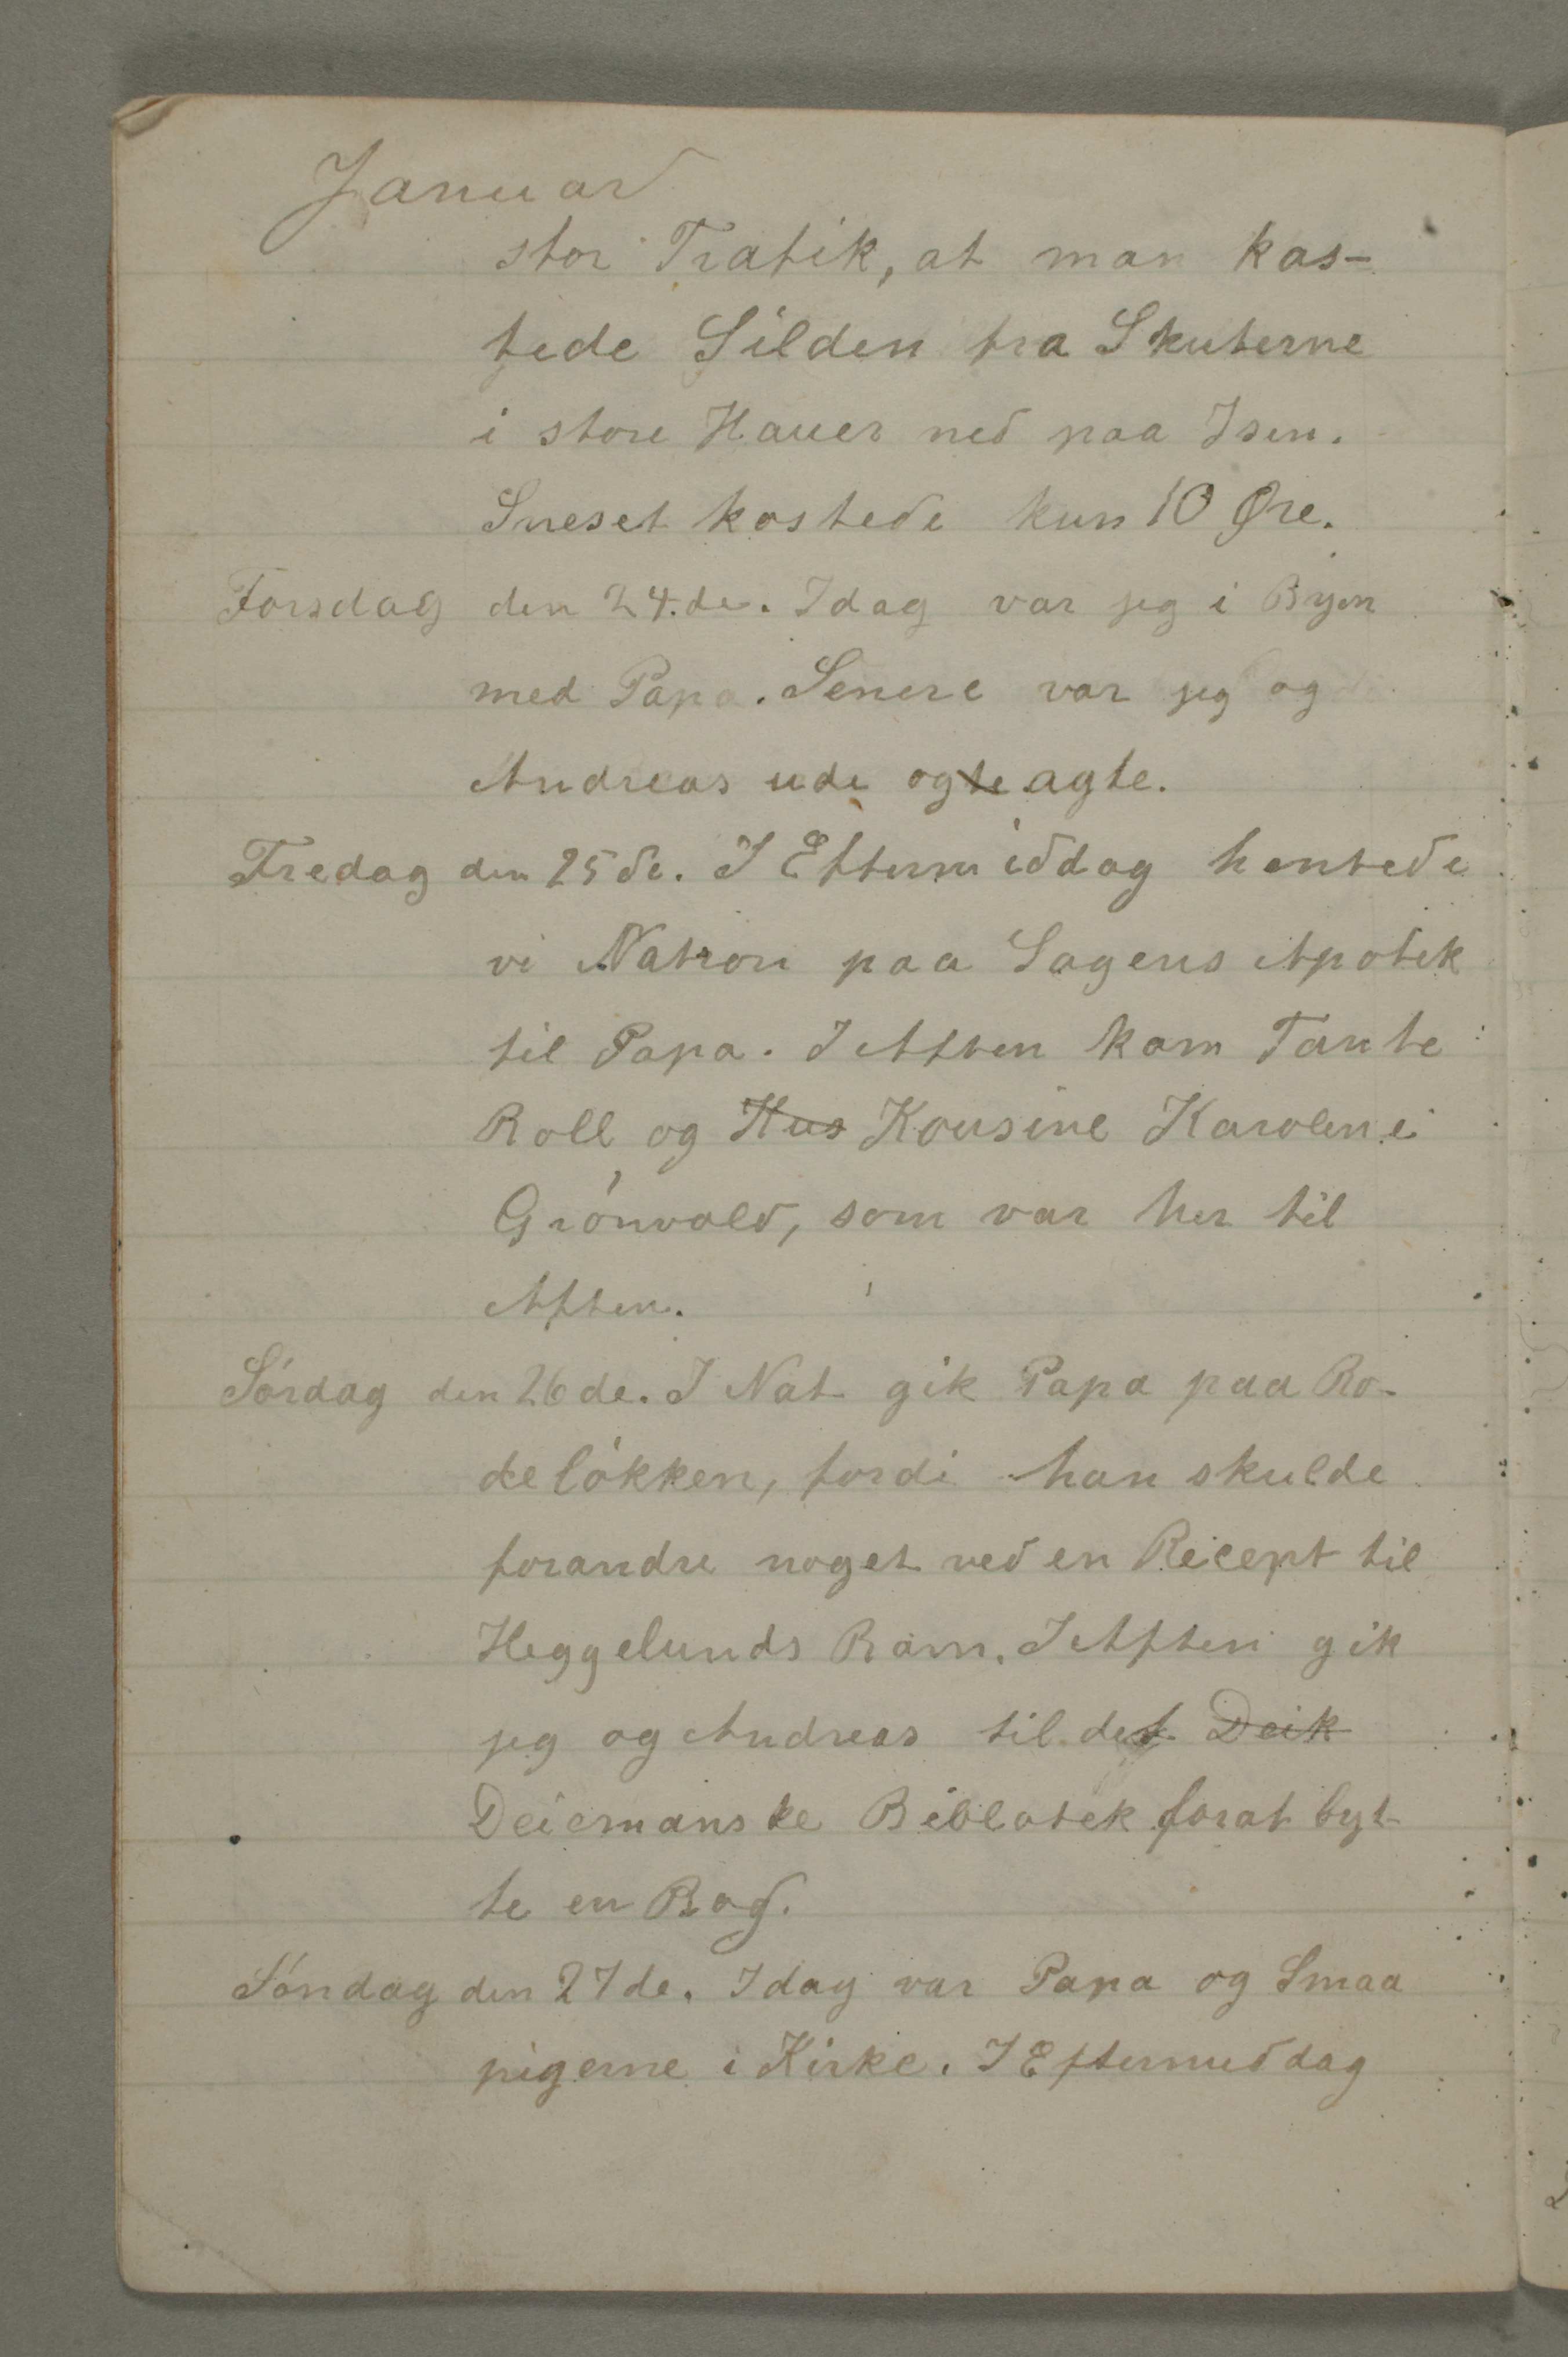 Januar
stor Trafik, at man kas-
tede Silden fra Skuterne
i store Hauer ned paa Isen.
Sneset kostede kun 10 Øre.
Torsdag den 24.de. Idag var jeg i Byen
med Papa. Senere var jeg og
Andreas ude og te agte.
Fredag den 25de. I Eftermiddag hentede
vi Natron paa Sagens Apotek
til Papa. I Aften kom Tante
Roll og Kus Kousine Karoline
Grónvold, som var her til
Aften.
Lórdag den 26de. I Nat gik Papa paa Ro-
delókken, fordi han skulde
forandre noget ved en Recept til
Heggelunds Barn. I Aften gik
jeg og Andreas til det Deik
Deicmanske Bibliotek forat byt-
te en Bog.
Sóndag den 27de. Idag var Papa og Smaa
pigerne i Kirke. I Eftermiddag